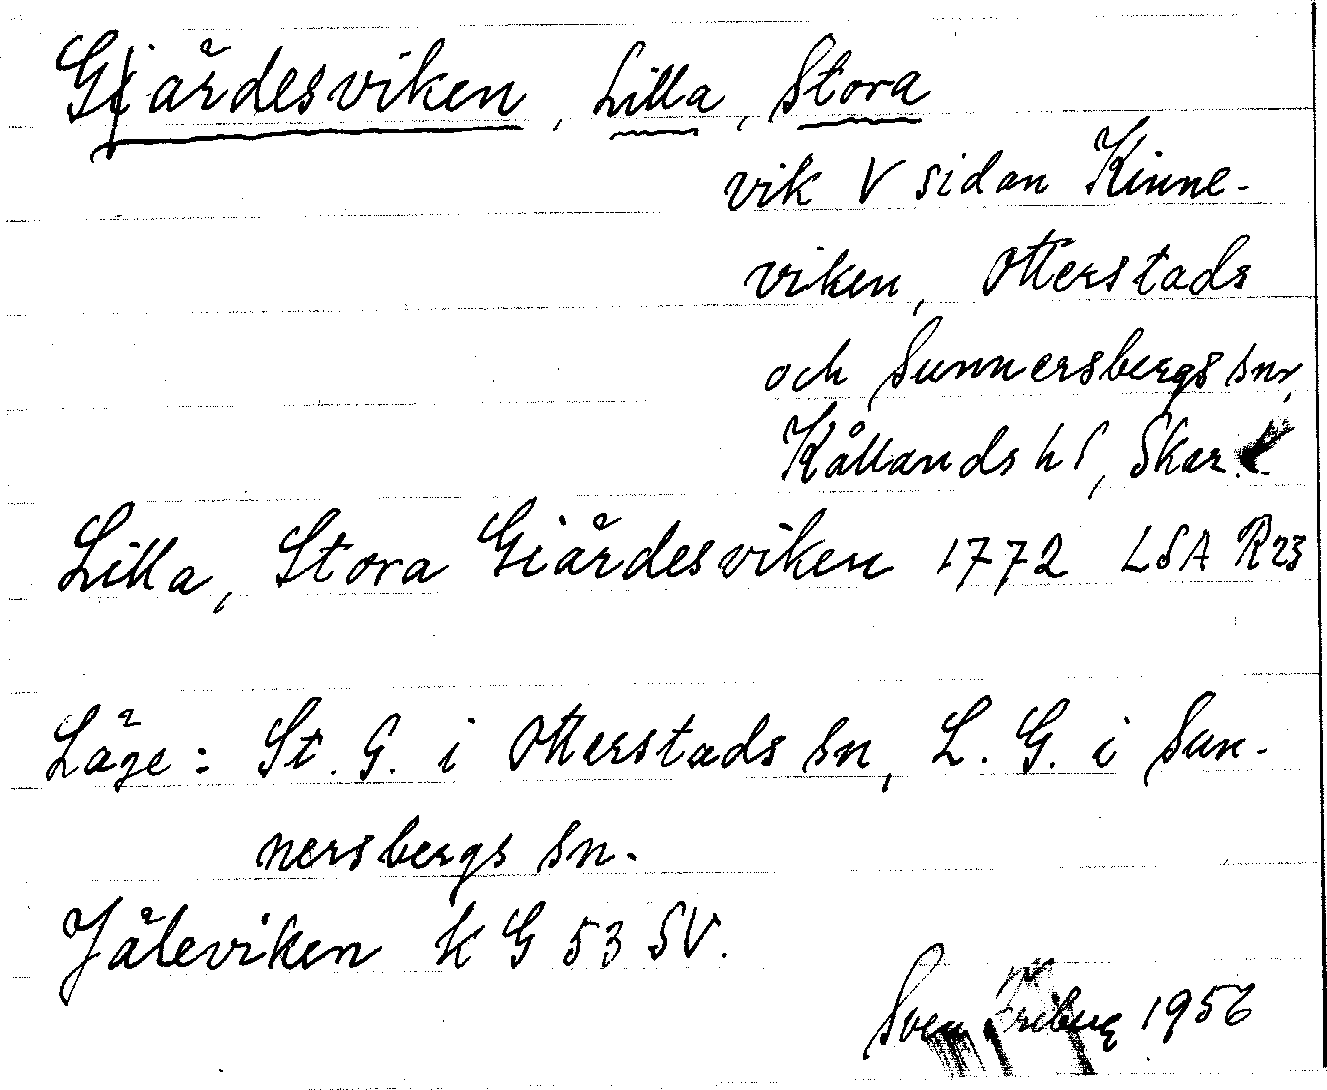 Gjärdesviken, Lilla, Stora
vik V sidan Kinne-
viken, Otterstads
och Sunnersbergs snr,
Kållands hd, Skar.
Lilla, Stora Giärdesviken 1772 LSA R23
Läge: St. G. i Otterstads sn, L. G. i Sun-
nersbergs sn.
Jäleviken K G 53 SV.
Sven Friberg 1956